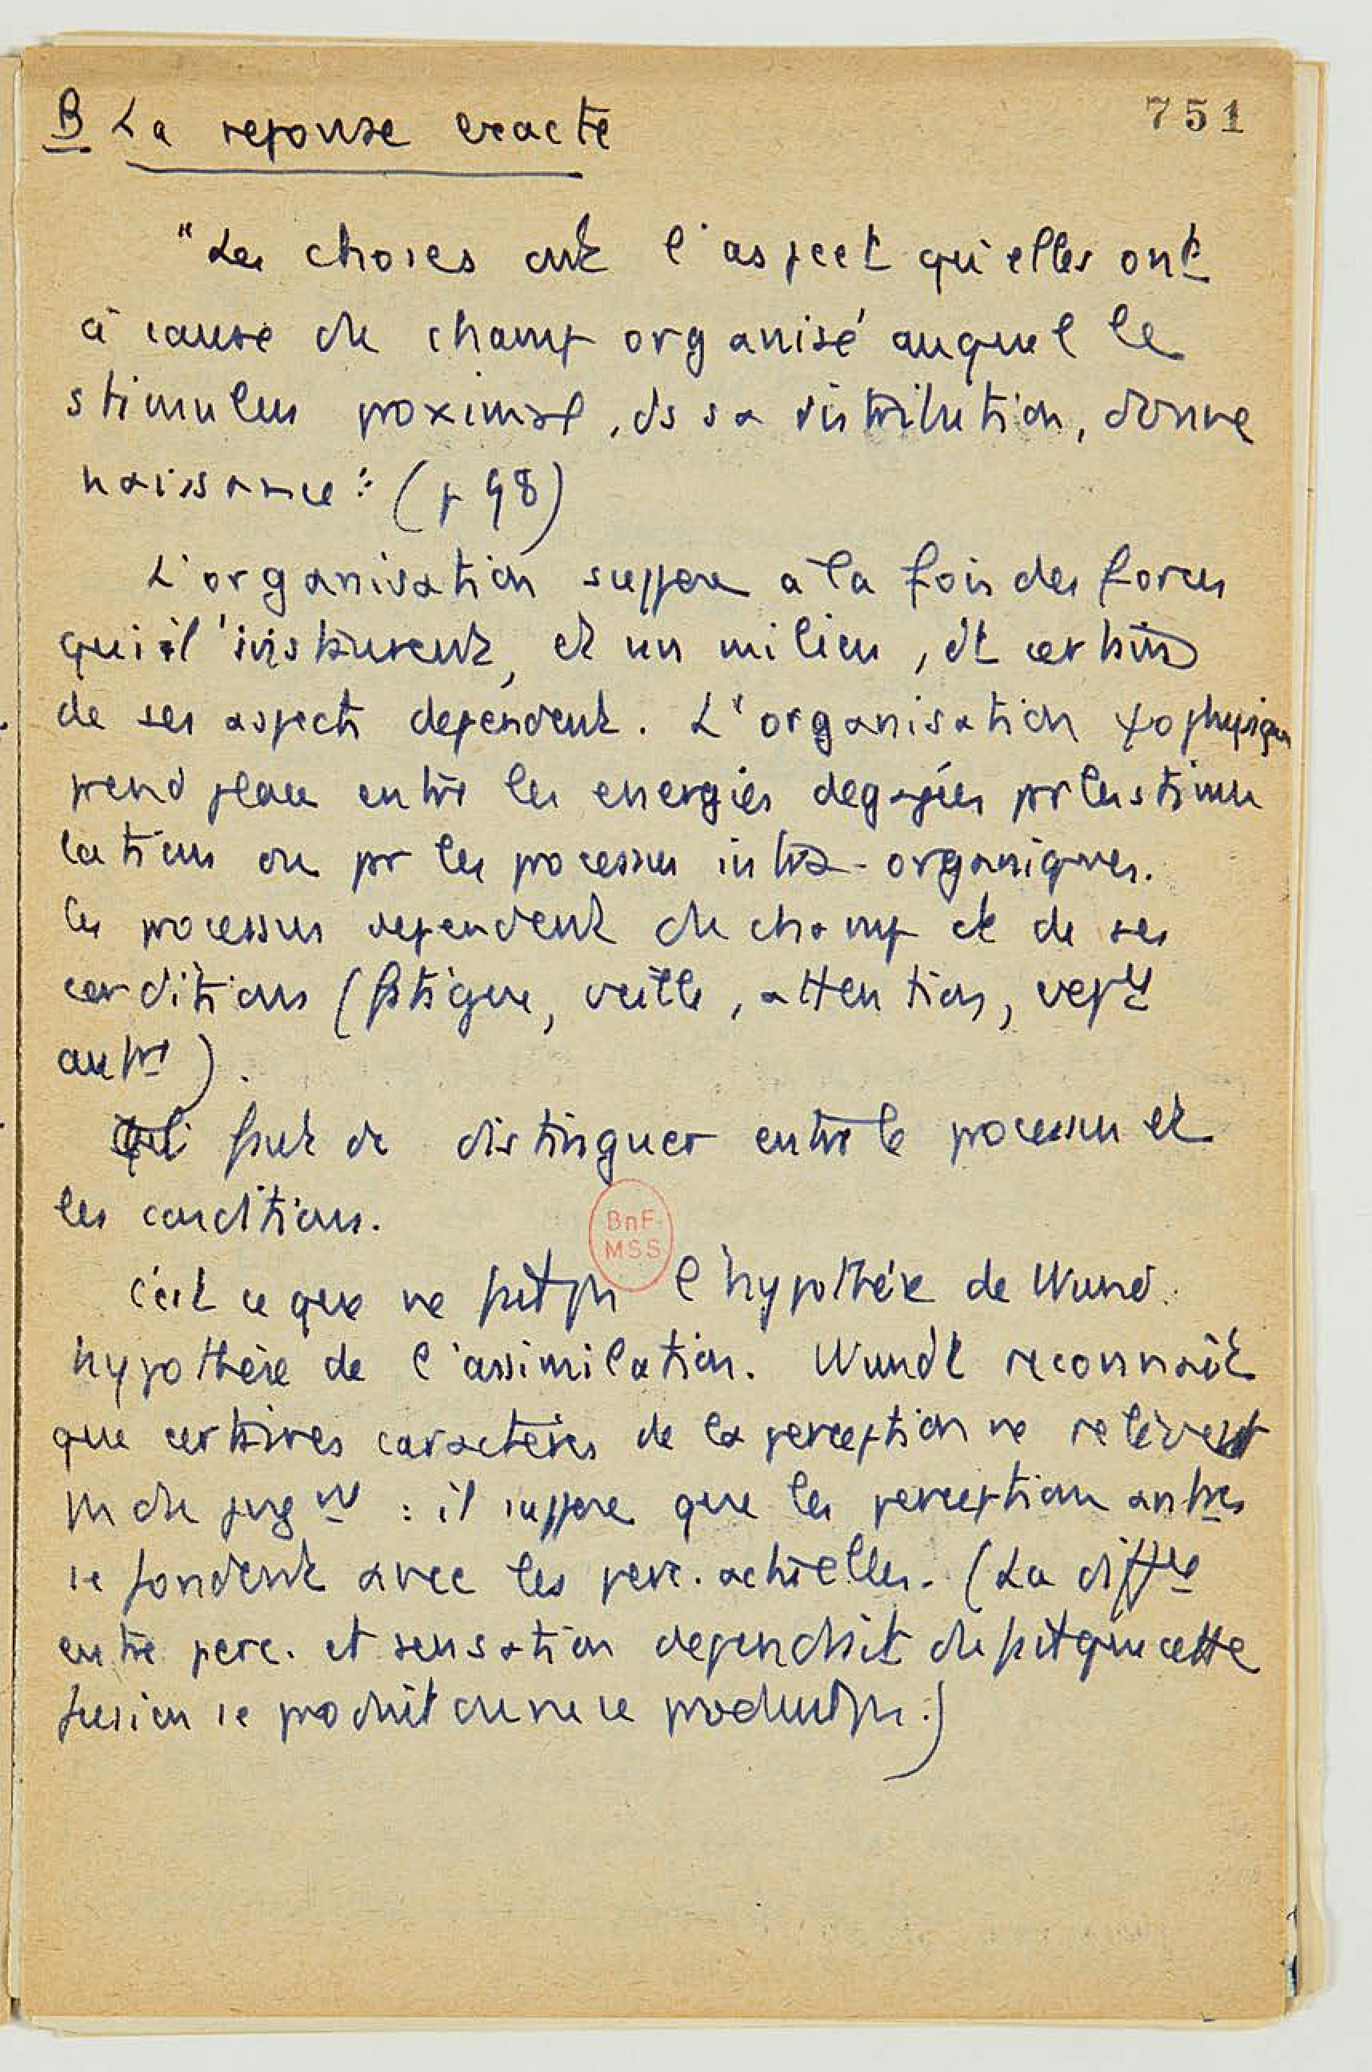 B La reponse exacte
751
"Les choses ont l'aspect qu'elles ont
à cause du champ organisé auquel le
stimulus proximal, ds sa distribution, donne
naissance". (p 98)
L'organisation suppose à la fois des forces
qui l'instaurent, et un milieu, dt certains
de ses aspects dependent. L'organisation
prend place entre les energies degagées pr les stimu
lations ou pr les processus intra-organiques.
les processus dependent du champ et de ses
conditions (fatigue, veille, attention,
).
faut distinguer entre le processus et
les conditions.
BnF
MSS
C'est ce que ne fait ps l'hypothèse de Wund.
hypothèse de l'assimilation. Wundt reconnaît
que certaines caractères de la perception ne relèvent
ps du jugnt : il suppose que les perceptions antres
se fondent avec les perc. actuelles. (La diffce
entre perc. et sensation dependrait du fait que cette
fusion se produit ou ne se produit ps.)